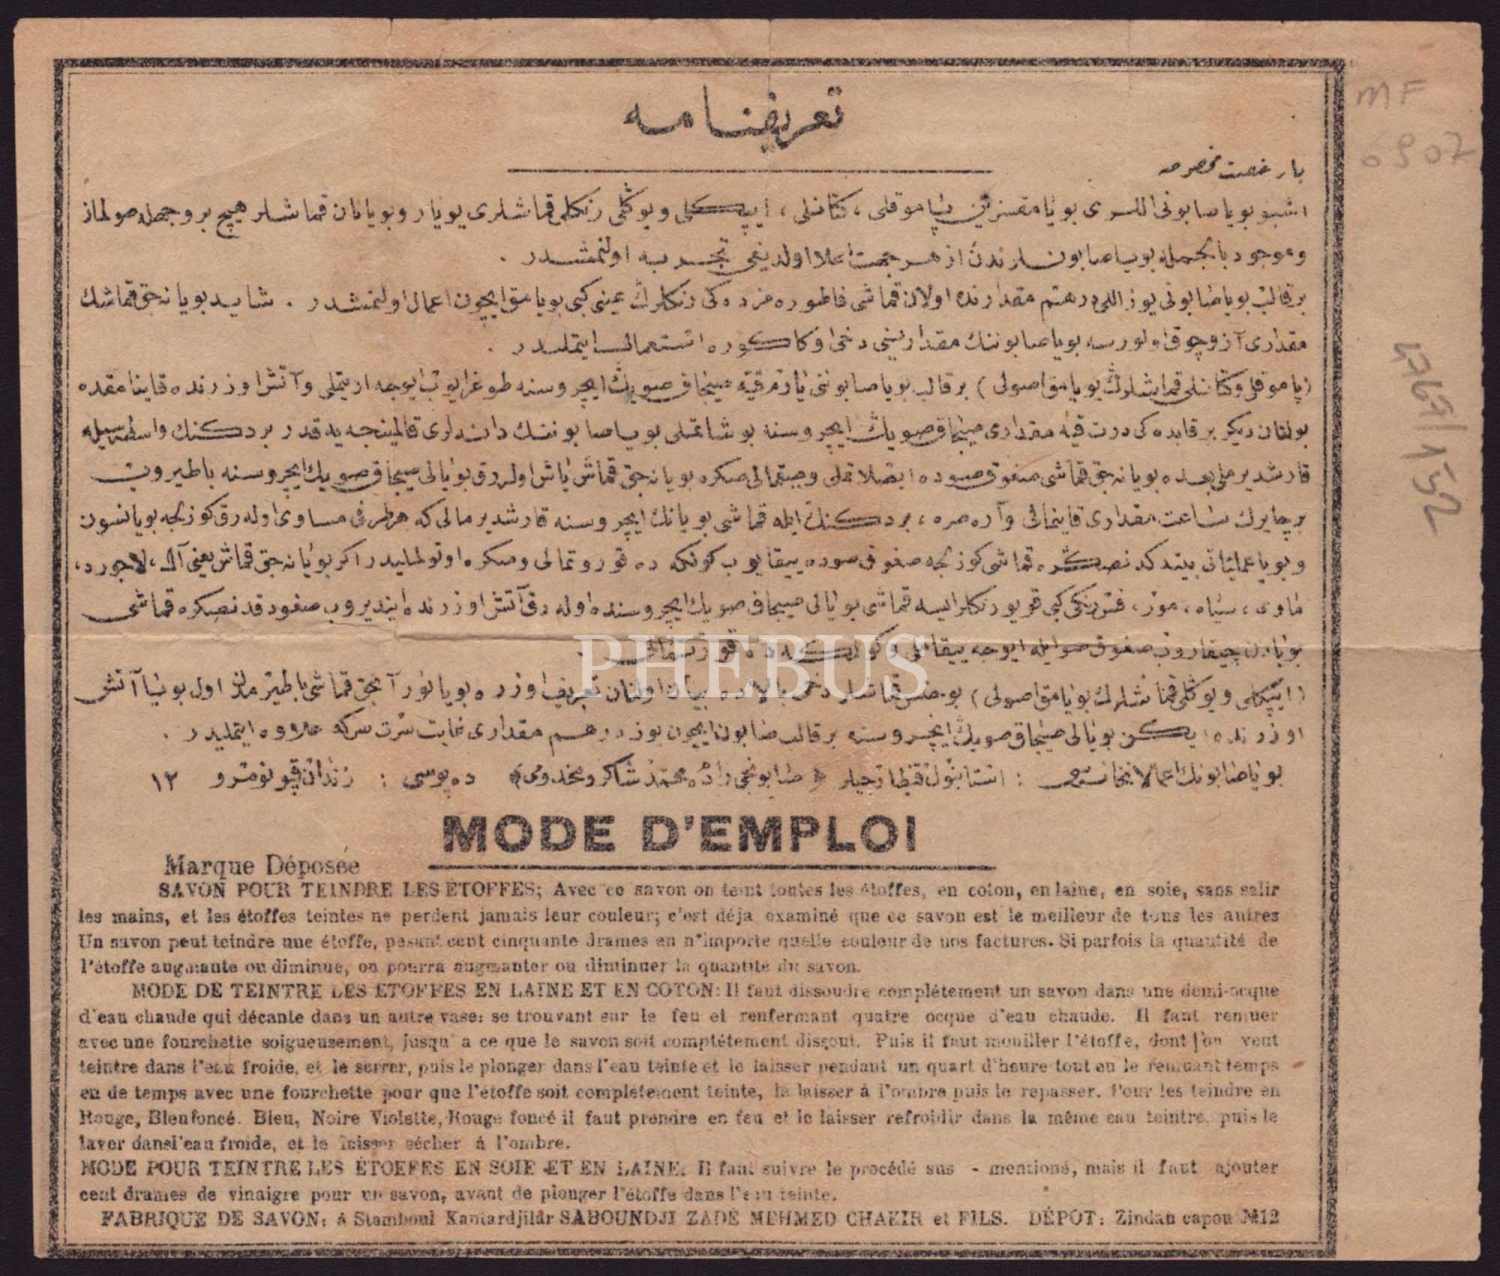 تعريفنامه
MF
6907
با رخصت مخصوصه
اشبو بويا صابونى اللرى بويامقسزين پاموقلى ، كتانلى ، ايپكلى ويوكلى رنكلى قماشلرى بويار وبويانان قماشلر هيچ بر وجهله صولماز
وموجود بالجمله بويا صابونلرندن از هر جهت اعلا اولديغى تجربه اولنمشدر .
بر قالب بويا صابونى يوز اللى درهم مقدارنده اولان قماشى فاطوره مزده كى رنكلرك عينى كبى بويامق ايچون اعمال اولنمشدر . شايد بويانه جق قماشك
مقدارى آز وچوق اولورسه بويا صابوننك مقدارينى دخى اوكا كوره استعمال ايتمليدر .
(پاموقلى وكتانلى قماشلرك بويامق اصولى) بر قالب بويا صابوننى يارم قيه صيجاق صويك ايچروسنه طوغرايوب ايوجه اريتملى وآتش اوزرنده قاينامقده
بولنان ديكر بر قابده كى درت قيه مقدارى صيجاق صويك ايچروسنه بوشاتملى بويا صابوننك دانه لرى قالمينجه يه قدر بر دكنك واسطه سيله
قارشديرملى بعده بويانه جق قماشى صغوق صوده ايصلاتملى وصيقمالى صكره بويانه جق قماش ياش اوله رق بويالى صيجاق صويك ايچروسنه باطيروب
بر چاريك ساعت مقدارى قاينمالى وآره صره ، بر دكنك ايله قماشى بويانك ايچروسنه قارشديرمالى كه هر طرفى مساوى اوله رق كوزلجه بويانسون
وبويا عملياتى بيتدكدنصكره قماشى كوزلجه صغوق صوده ييقايوب كولكه ده قوروتمالى وصكره اوتولمليدر اكر بويانه جق قماش يعنى آل ، لاجورد ،
ماوى ، سياه ، مور ، فس رنكى كبى قويو رنكلر ايسه قماشى بويالى صيجاق صويك ايچروسنده اوله رق آتش اوزرنده اينديروب صغودقدنصكره قماشى
بويادن چيقاروب صغوق صوايله ايوجه ييقاملى وكولكه ده قورتمالى .
(ايپكلى ويوكلى قماشلرك بويامق اصولى) بو جنس قماشلر دخى بالاده بيان اولنان تعريف اوزره بويانور آنجق قماشى باطيرمازدن اول بويا آتش
اوزرنده ايكن بويالى صيجاق صويك ايچروسنه بر قالب صابون ايچون يوز درهم مقدارى غايت سرت سركه علاوه ايتمليدر .
بويا صابونك اعمالاتخانه سى : استانبول قنطارجيلر «صابونجى زاده محمد شاكر ومخدومى» ده پوسى : زندان قپو نومرو ١٢
MODE D'EMPLOI
Marque Déposée
SAVON POUR TEINDRE LES ETOFFES; Avec ce savon on teint toutes les étoffes, en coton, en laine, en soie, sans salir
les mains, et les étoffes teintes ne perdent jamais leur couleur; c'est déja examiné que ce savon est le meilleur de tous les autres
Un savon peut teindre une étoffe, pesant cent cinquante drames en n'importe quelle couleur de nos factures. Si parfois la quantité de
l'étoffe augmante ou diminue, on pourra augmanter ou diminuer la quantité du savon.
MODE DE TEINTRE LES ETOFFES EN LAINE ET EN COTON: Il faut dissoudre complétement un savon dans une demi-ocque
d'eau chaude qui décante dans un autre vase: se trouvant sur le feu et renfermant quatre ocque d'eau chaude. Il faut remuer
avec une fourchette soigueusement, jusqu' a ce que le savon soit complétement dissout. Puis il faut mouiller l'étoffe, dont j'on veut
teintre dans l'eau froide, et le serrer, puis le plonger dans l'eau teinte et le laisser pendant un quart d'heure tout en le remuant temps
en de temps avec une fourchette pour que l'étoffe soit complétement teinte, la laisser à l'ombre puis le repasser. Pour les teindre en
Rouge, Bleufoncé. Bleu, Noire Violette, Rouge foncé il faut prendre en feu et le laisser refroidir dans la même eau teintre, puis le
laver dansl'eau froide, et le laisser sécher á l'ombre.
MODE POUR TEINTRE LES ÉTOEFES EN SOIE ET EN LAINE. Il faut suivre le procédé sus - mentioné, mais il faut ajouter
cent drames de vinaigre pour un savon, avant de plonger l'étoffe dans l'eau teinte.
FABRIQUE DE SAVON: á Stamboul Kantardjilar SABOUNDJI ZADÉ MEHMED CHAKIR et FILS. DÉPOT: Zindan capou №12
PHEBUS